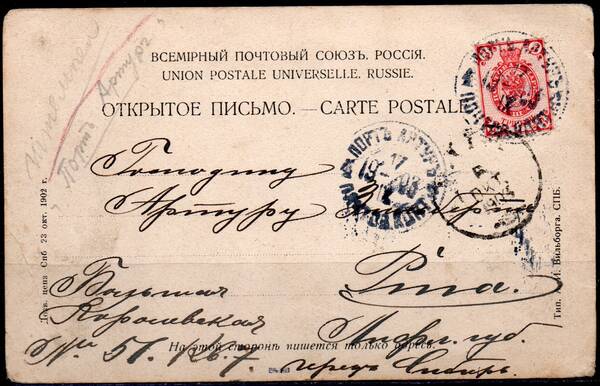 ВСЕМІРНЫЙ ПОЧТОВЫЙ СОЮЗЪ. РОССІЯ.
UNION POSTALE UNIVERSELLE. RUSSIE.
ОТКРЫТОЕ ПИСЬМО. — CARTE POSTALE
Портъ Артуръ
ПОРТЪ АРТУРЪ
17
19 03
Господину
Артуру
Рига.
Большая
Королевская
Лифл. губ.
На этой сторонѣ пишется только адресъ.
№ 5
через Сибирь
Дозв. ценз. Спб. 23 окт. 1902 г.
Тип. И. Вильборга. СПБ.